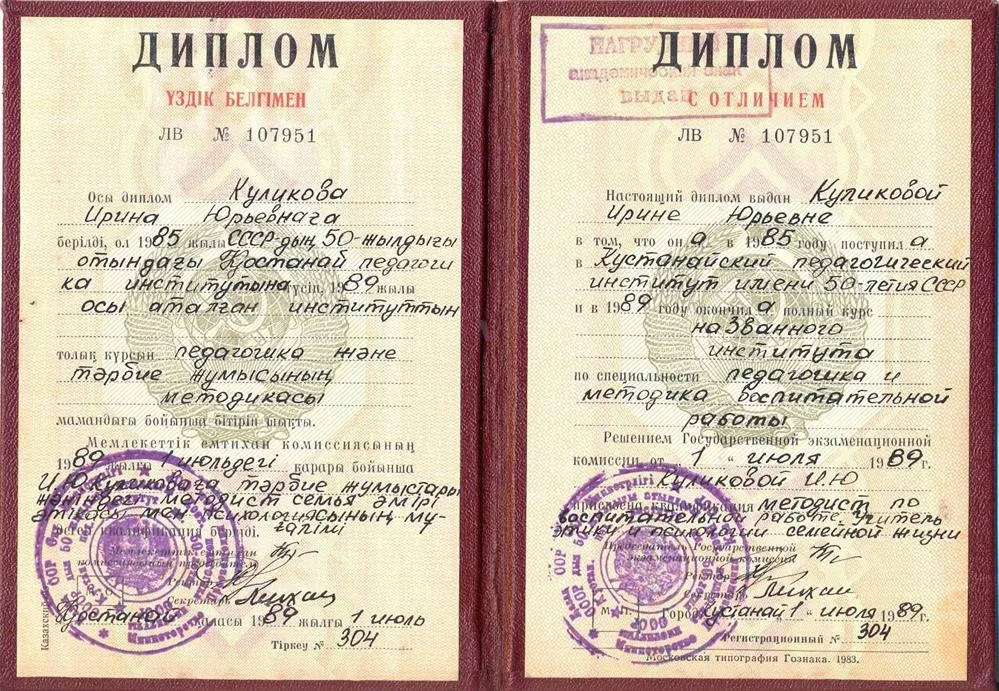 ДИПЛОМ
ҮЗДІК БЕЛГІМЕН
ЛВ № 107951
Осы диплом Куликова
Ирина Юрьевнаға
берілді, ол 1985 жылы СССР-дың 50-жылдығы
атындағы Қостанай педагоги
ка институтына түсіп, 1989 жылы
осы аталған институттың
толық курсын педагогика және
тәрбие жұмысының
методикасы
мамандығы бойынша бітіріп шықты.
Мемлекеттік емтихан комиссиясының
1989 жылғы 1 июльдегі қарары бойынша
И.Ю.Куликоваға тәрбие жұмыстары
жөніндегі методист семья әмірі
этикасы мен психологиясының мұ-
ғалімі
квалификация берілді.
Мемлекеттік емтихан
комиссиясының председателі
Ректор
Секретарь
Қостанай қаласы 1989 жылғы 1 июль
Тіркеу № 304
Казахский
ДИПЛОМ
НАГРУДНЫЙ
ВЫДАН
С ОТЛИЧИЕМ
ЛВ № 107951
Настоящий диплом выдан Куликовой
Ирине Юрьевне
в том, что он а в 1985 году поступил а
в Кустанайский педагогический
институт имени 50-летия СССР
и в 1989 году окончил а полный курс
названного
института
по специальности педагогика и
методика воспитательной
работы
Решением Государственной экзаменационной
комиссии от 1 „ июля 1989 г.
Куликовой И.Ю
присвоена квалификация методист по
воспитательной работе, учитель
этики и психологии семейной жизни
Председатель Государственной
экзаменационной комиссии
Ректор
Секретарь
М. П. Город Кустанай „1„ июля 1989 г.
Регистрационный № 304
Московская типография Гознака. 1983.